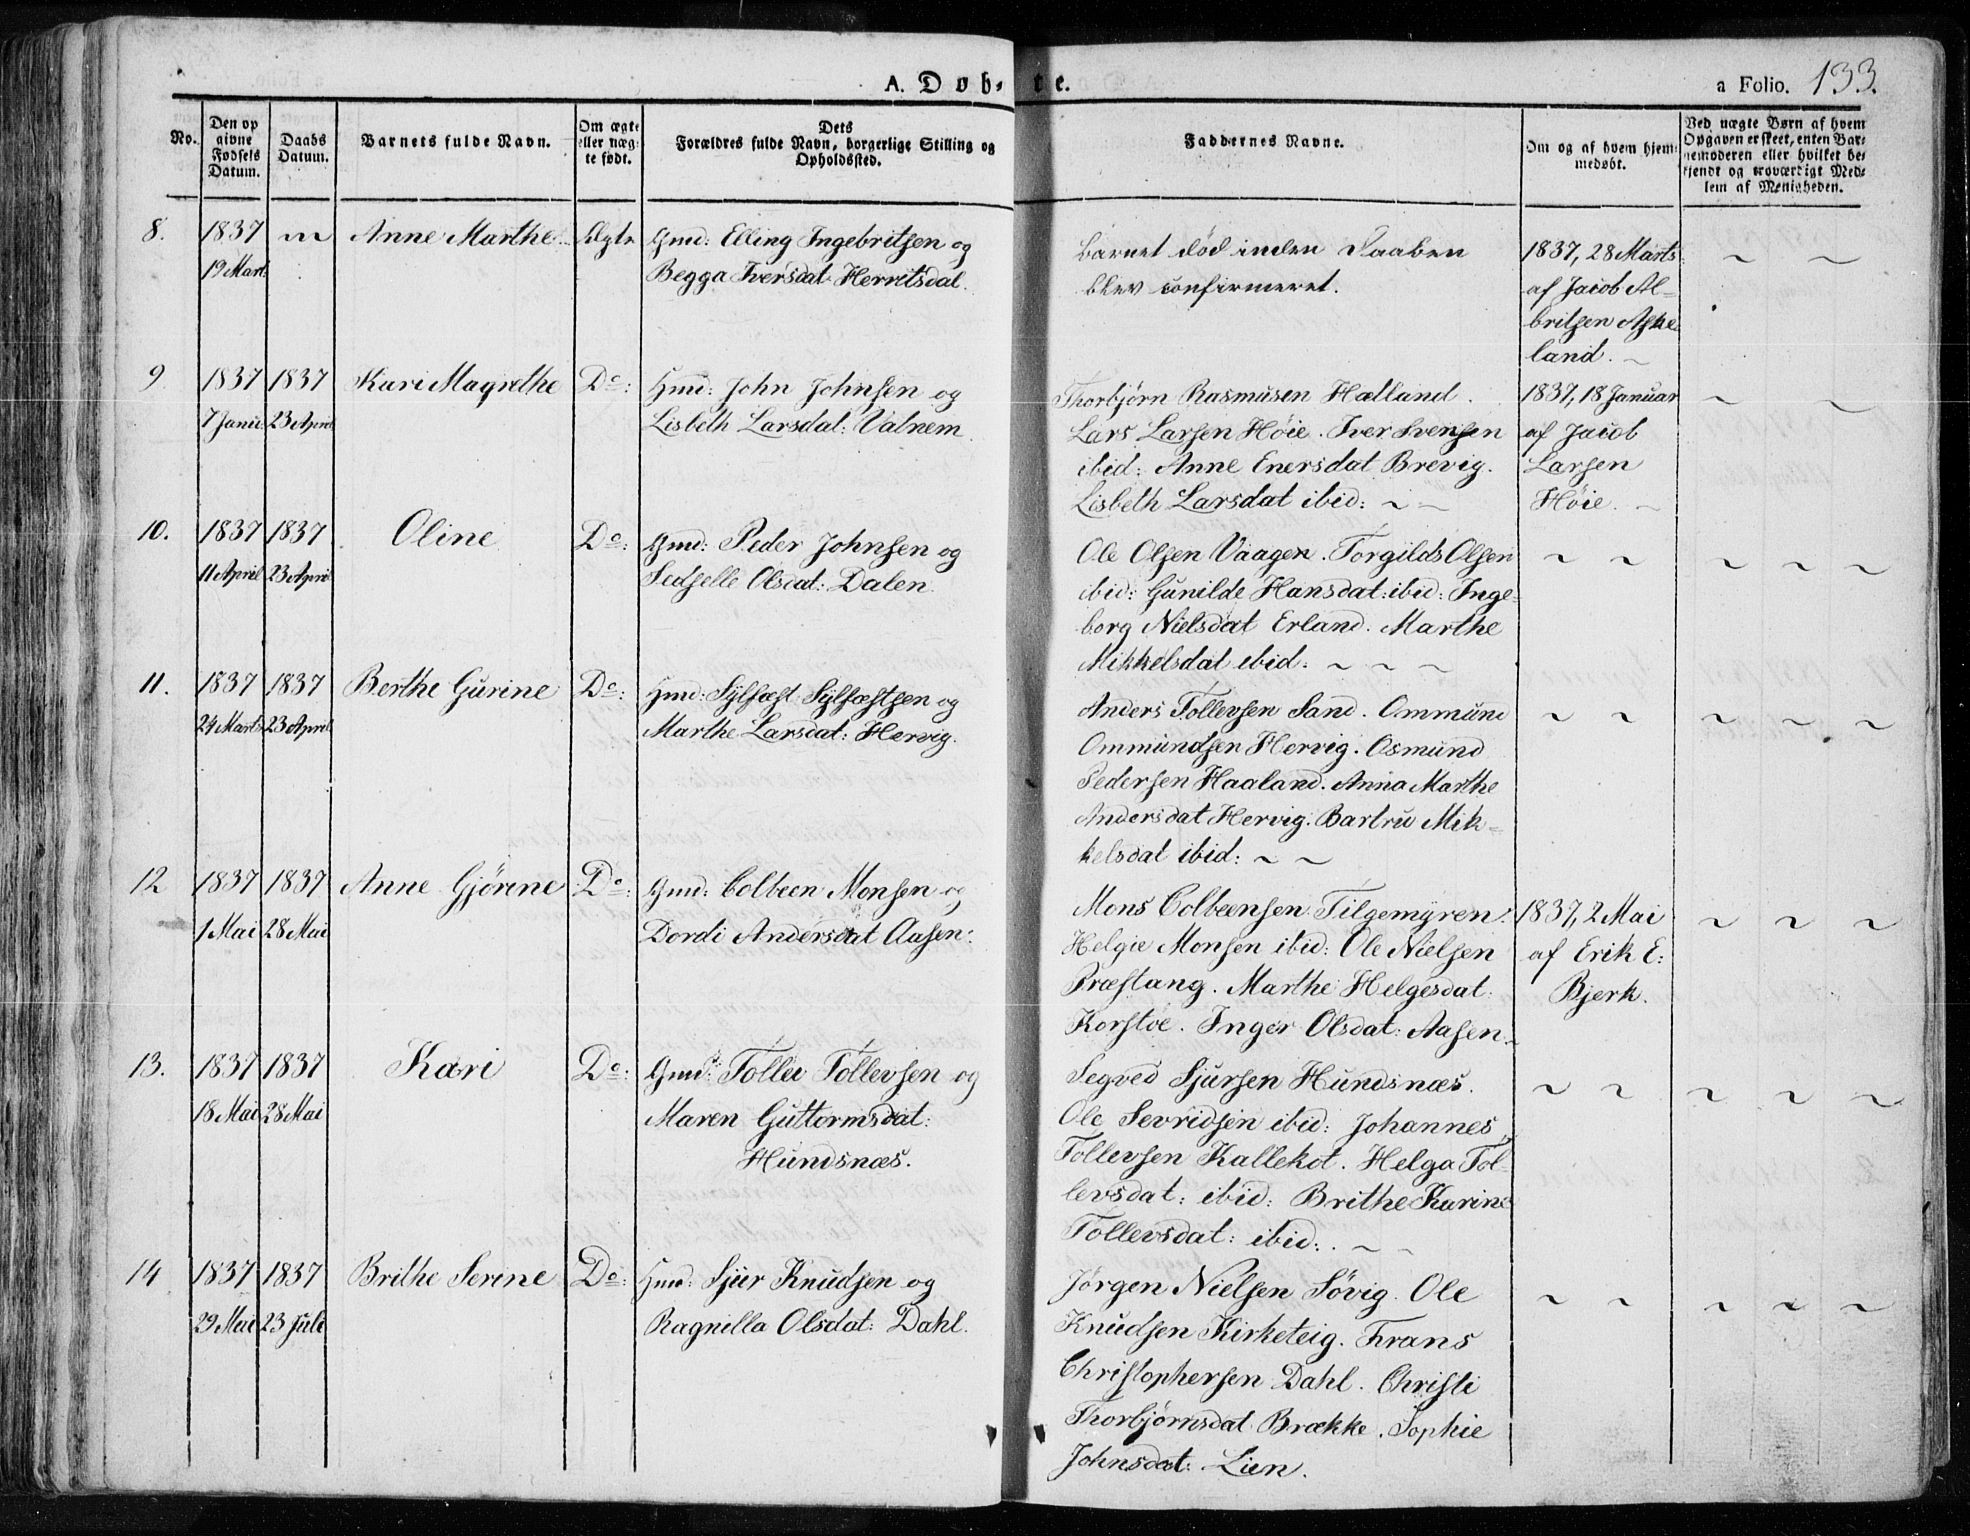 A. Døb-te.
a Folio. 133.
No.
Den opgivne Fødsels Datum.
Daabs Datum.
Barnets fulde Navn.
Om ægte eller uægte født.
Dets Forældres fulde Navn, borgerlige Stilling og Opholdssted.
Faddernes Navne.
Om og af hvem hjemmedøbt.
Ved uægte Børn af hvem Opgaven er skeet, enten Barnemoderen eller hvilket bekjendt og troværdigt Medlem af Menigheden.
8. 1837 Anne Marthe Ægte Gmd: Elling Ingebritsen og
19 Mart Begga Iversdat Hervitsdal.
Barnet død inden Daaben
blev confirmeret.
1837, 28 Marts
af Jacob Al-
britsen Aske
land.
9 1837 1837 Kari Magrethe Do: Hmd: John Johnsen og
7 Janu 23 April Lisbeth Larsdat: Vatnem
Thorbjørn Rasmusen Hælland.
Lars Larsen Høie. Iver Svensen
ibid: Anne Enersdat Brevig.
Lisbeth Larsdat ibid:
1837, 18 Januar
af Jacob
Larsen
Høie.
10. 1837 1837 Oline Do: Gmd: Peder Johnsen og
11 April 23 April Sedselle Olsdat: Dalen.
Ole Olsen Vaagen. Torgilds Olsen
ibid: Gunilde Hansdat: ibid: Inge-
borg Nielsdat Erland. Marthe
Mikkelsdat ibid:
11. 1837 1837 Berthe Gurine Do: Hmd: Sylfæst Sylfæstsen og
24 Marts 23 April Marthe Larsdat: Hervig.
Anders Tollevsen Sand. Ommund
Ommundsen Hervig. Osmund
Pedersen Haaland. Anna Marthe
Andersdat Hervig. Bartru Mik-
kelsdat ibid:
12 1837 1837 Anne Gjørine Do: Gmd: Colbeen Monsen og
1 Mai 28 Mai Dordi Andersdat Aasen:
Mons Colbeensen Tilgemyren:
Helgie Monsen ibid: Ole Nielsen
Præstang. Marthe Helgesdat:
Korstoe. Inger Olsdat: Aasen.
1837, 2 Mai
af Erik E:
Bjerk.
13. 1837 1837 Kari Do: Gmd: Tollev Tollevsen og
18 Mai 28 Mai Maren Guttormsdat:
Hundsnæs.
Segved Sjursen Hundsnæs.
Ole Sevridsen ibid: Johannes
Tollevsen Kallekot. Helga Tol-
levsdat: ibid: Brithe Karine
Tollevsdat: ibid:
14 1837 1837 Brithe Serine Do: Hmd: Sjur Knudsen og
29 Mai 23 Juli Ragnilla Olsdat: Dahl.
Jørgen Nielsen Søvig. Ole
Knudsen Kirketeig. Frans
Christophersen Dahl. Christi
Thorbjørnsdat Brække. Sophie
Johnsdat: Lien.